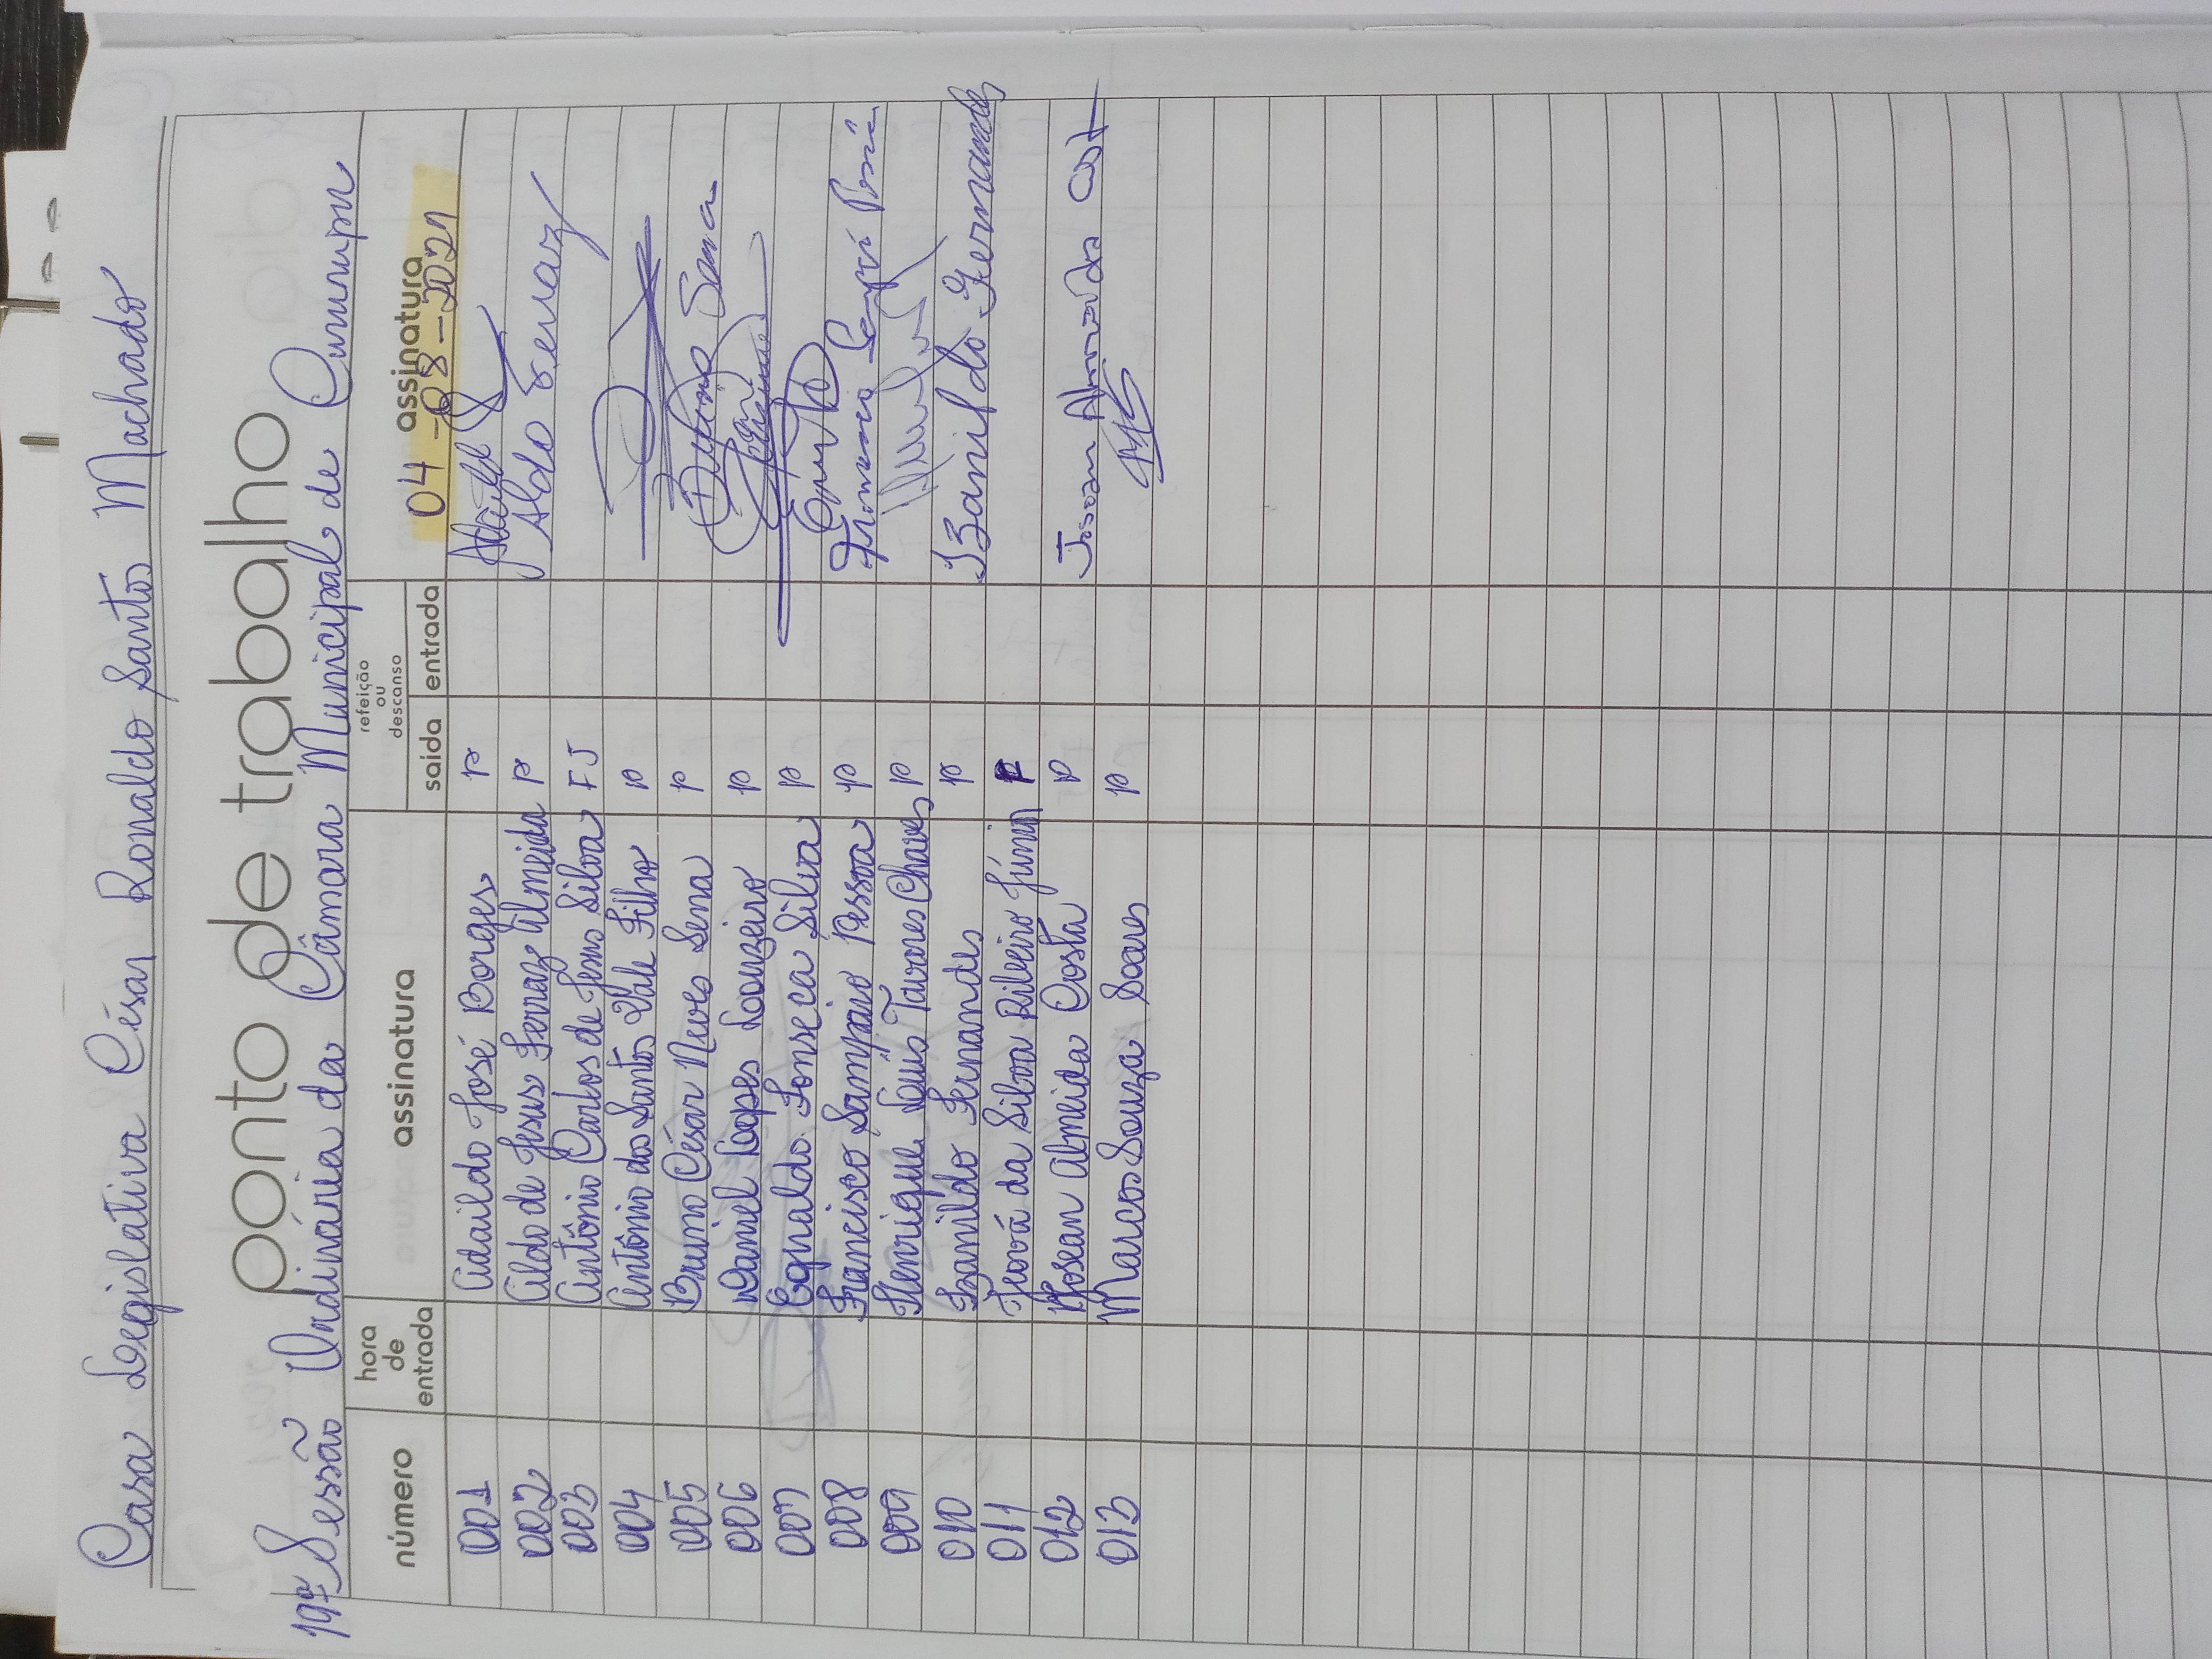 Casa Legislativa César Ronaldo Santos Machado
ponto de trabalho
19ª Sessão Ordinária da Câmara Municipal de Cururupu
número hora de entrada assinatura refeição ou descanso saída entrada assinatura
04-08-2021
001 Adaildo José Borges P
002 Aldo de Jesus Ferraz Almeida P Aldo Ferraz
003 Antônio Carlos de Jesus Silva FJ
004 Antônio dos Santos Vale Filho P
005 Bruno César Neves Sena P Bruno Sena
006 Daniel Lopes Louzeiro P
007 Egnaldo Fonseca Silva P
008 Francisco Sampaio Pessoa P Francisco
009 Henrique Louis Tavares Chaves P
010 Izanildo Fernandes P Izanildo Fernandes
011 Jeová da Silva Ribeiro Júnior F
012 Josean Almeida Costa P Josean Almeida
013 Marcos Souza Soares P MS